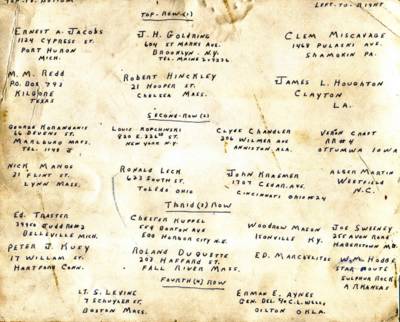 TOP-TO-BOTTOM
LEFT-TO-RIGHT
TOP-ROW (1)
ERNEST A. JACOBS
1124 CYPRESS ST.
PORT HURON
MICH.
J. H. GOLDRING
604 ST MARKS AVE.
BROOKLYN. N.Y.
TEL. MAINE 2-9236
CLEM MISCAVAGE
1469 PULASKI AVE.
SHAMOKIN PA.
M. M. REDD
P.O. BOX 793
KILGORE
TEXAS
ROBERT HINCKLEY
21 HOOPER ST.
CHELSEA MASS.
JAMES L. HOUGHTON
CLAYTON
LA.
SECOND-ROW (2)
GEORGE
66 DEVENS ST.
MARLBORO MASS.
TEL. 1149
LOUIS KOPCHINSKI
820 E. ST.
NEW YORK N.Y.
CLYDE CHANDLER
306 WILMER AVE
ANNISTON ALA.
VERNON CRAFT
RR #4
OTTUMWA IOWA
NICK MANOS
21 FLINT ST.
LYNN MASS.
RONALD LECK
623 SOUTH ST.
TOLEDO OHIO
JOHN KRAEMER
1707 CEDAR AVE.
CINCINNATI OHIO #24
ALBER MARTIN
WESTFIELD
N.C.
THRID (3) ROW
ED. TRASTER
JUDD RD #2
BELLEVILLE MICH.
CHESTER KUPPEL
554 BOSTON AVE
EGG HORBOR CITY N.J.
WOODROW MASON
ISONVILLE KY.
JOE SWEENEY
255 AVON ROAD
HAVERSTOWN
PETER J. KUZY
17 WILLAM ST.
HARTFORD CONN.
ROLAND DUQUETTE
203 HAFFARD ST.
FALL RIVER MASS.
ED. MARCKELITOS
W.M. HOBBS
STAR ROUTE
SULPHUR ROCK
ARKANAS
FOURTH (4) ROW
LT. S. LEVINE
7 SCHUYLER ST.
BOSTON MASS.
ERMAN E. AYNES
GEM. DEL. 40 C.L. WELLS,
DILTON OKLA.